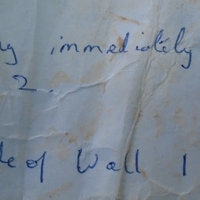 immediately
2.
of Wall 1